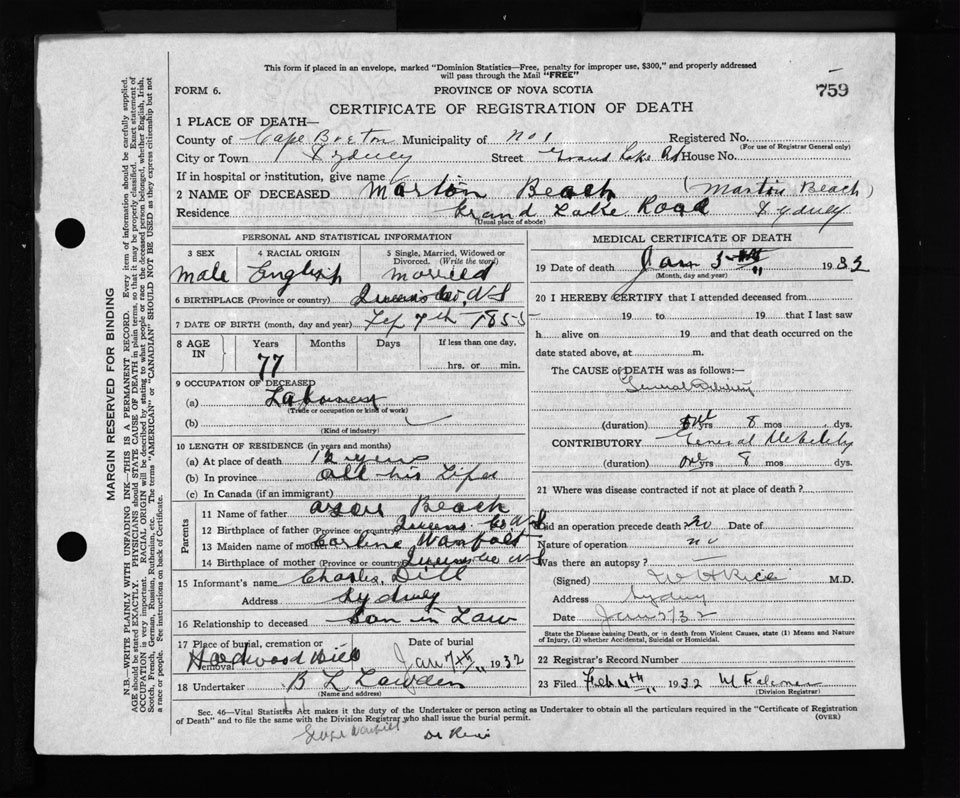 This form if placed in an envelope, marked "Dominion Statistics—Free, penalty for improper use, $300," and properly addressed
will pass through the Mail "FREE"
FORM 6.
PROVINCE OF NOVA SCOTIA
759
CERTIFICATE OF REGISTRATION OF DEATH
1 PLACE OF DEATH—
County of Cape Breton Municipality of No 1 Registered No.
(For use of Registrar General only)
City or Town Sydney Street Grand Lake Rd House No.
If in hospital or institution, give name
2 NAME OF DECEASED Martin Beach (Martin Beach)
Residence Grand Lake Road Sydney
(Usual place of abode)
PERSONAL AND STATISTICAL INFORMATION
3 SEX
Male
4 RACIAL ORIGIN
English
5 Single, Married, Widowed or Divorced. (Write the word)
Married
6 BIRTHPLACE (Province or country) Queens Co, NS
7 DATE OF BIRTH (month, day and year) 7th 1855
8 AGE IN
Years
77
Months
Days
If less than one day,
hrs. or min.
9 OCCUPATION OF DECEASED
(a) Labourer
(Trade or occupation or kind of work)
(b)
(Kind of industry)
10 LENGTH OF RESIDENCE (in years and months)
(a) At place of death 12 years
(b) In province all his Life
(c) In Canada (if an immigrant)
Parents
11 Name of father Beach
12 Birthplace of father (Province or country) Queens Co NS
13 Maiden name of mother
14 Birthplace of mother (Province or country) Queens Co NS
15 Informant's name Charles Dill
Address Sydney
16 Relationship to deceased Son in Law
17 Place of burial, cremation or removal Hardwood Hill
Date of burial Jan 7th 1932
18 Undertaker B L
(Name and address)
MEDICAL CERTIFICATE OF DEATH
19 Date of death Jan 5th 1932
(Month, day and year)
20 I HEREBY CERTIFY that I attended deceased from
19 to 19 that I last saw
h alive on 19 and that death occurred on the
date stated above, at m.
The CAUSE of DEATH was as follows:—
General Debility
(duration) yrs 8 mos. dys.
CONTRIBUTORY General Debility
(duration) one yrs 8 mos. dys.
21 Where was disease contracted if not at place of death?
Did an operation precede death? no Date of
Nature of operation no
Was there an autopsy?
(Signed) W H Rice M.D.
Address Sydney
Date Jan 5/32
State the Disease causing Death, or in death from Violent Causes, state (1) Means and Nature
of Injury, (2) whether Accidental, Suicidal or Homicidal.
22 Registrar's Record Number
23 Filed Feb 4th 1932
(Division Registrar)
Sec. 46—Vital Statistics Act makes it the duty of the Undertaker or person acting as Undertaker to obtain all the particulars required in the "Certificate of Registration
of Death" and to file the same with the Division Registrar who shall issue the burial permit.
(OVER)
Dr Rice
MARGIN RESERVED FOR BINDING
N.B.—WRITE PLAINLY WITH UNFADING INK—THIS IS A PERMANENT RECORD. Every item of information should be carefully supplied.
AGE should be stated EXACTLY. PHYSICIANS should STATE CAUSE OF DEATH in plain terms, so that it may be properly classified. Exact statement of
OCCUPATION is very important. RACIAL ORIGIN will be described by stating to what people or race the deceased person belonged, whether English, Irish,
Scotch, French, German, Russian, Ruthenian, etc. The terms "AMERICAN" or "CANADIAN" SHOULD NOT BE USED as they express citizenship but not
a race or people. See instructions on back of Certificate.